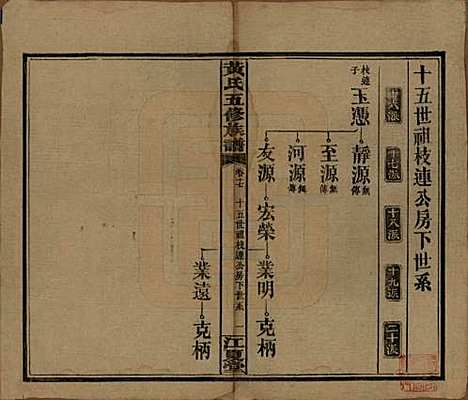 十五世祖枝連公房下世系
十六派
十七派
十八派
十九派
二十派
枝連子
玉憑
靜源 無傳
至源 無傳
河源 無傳
友源
宏榮
業明
克柄
業遠
克柄
黃氏五修族譜
卷七 十五世祖枝連公房下世系 一
江夏堂